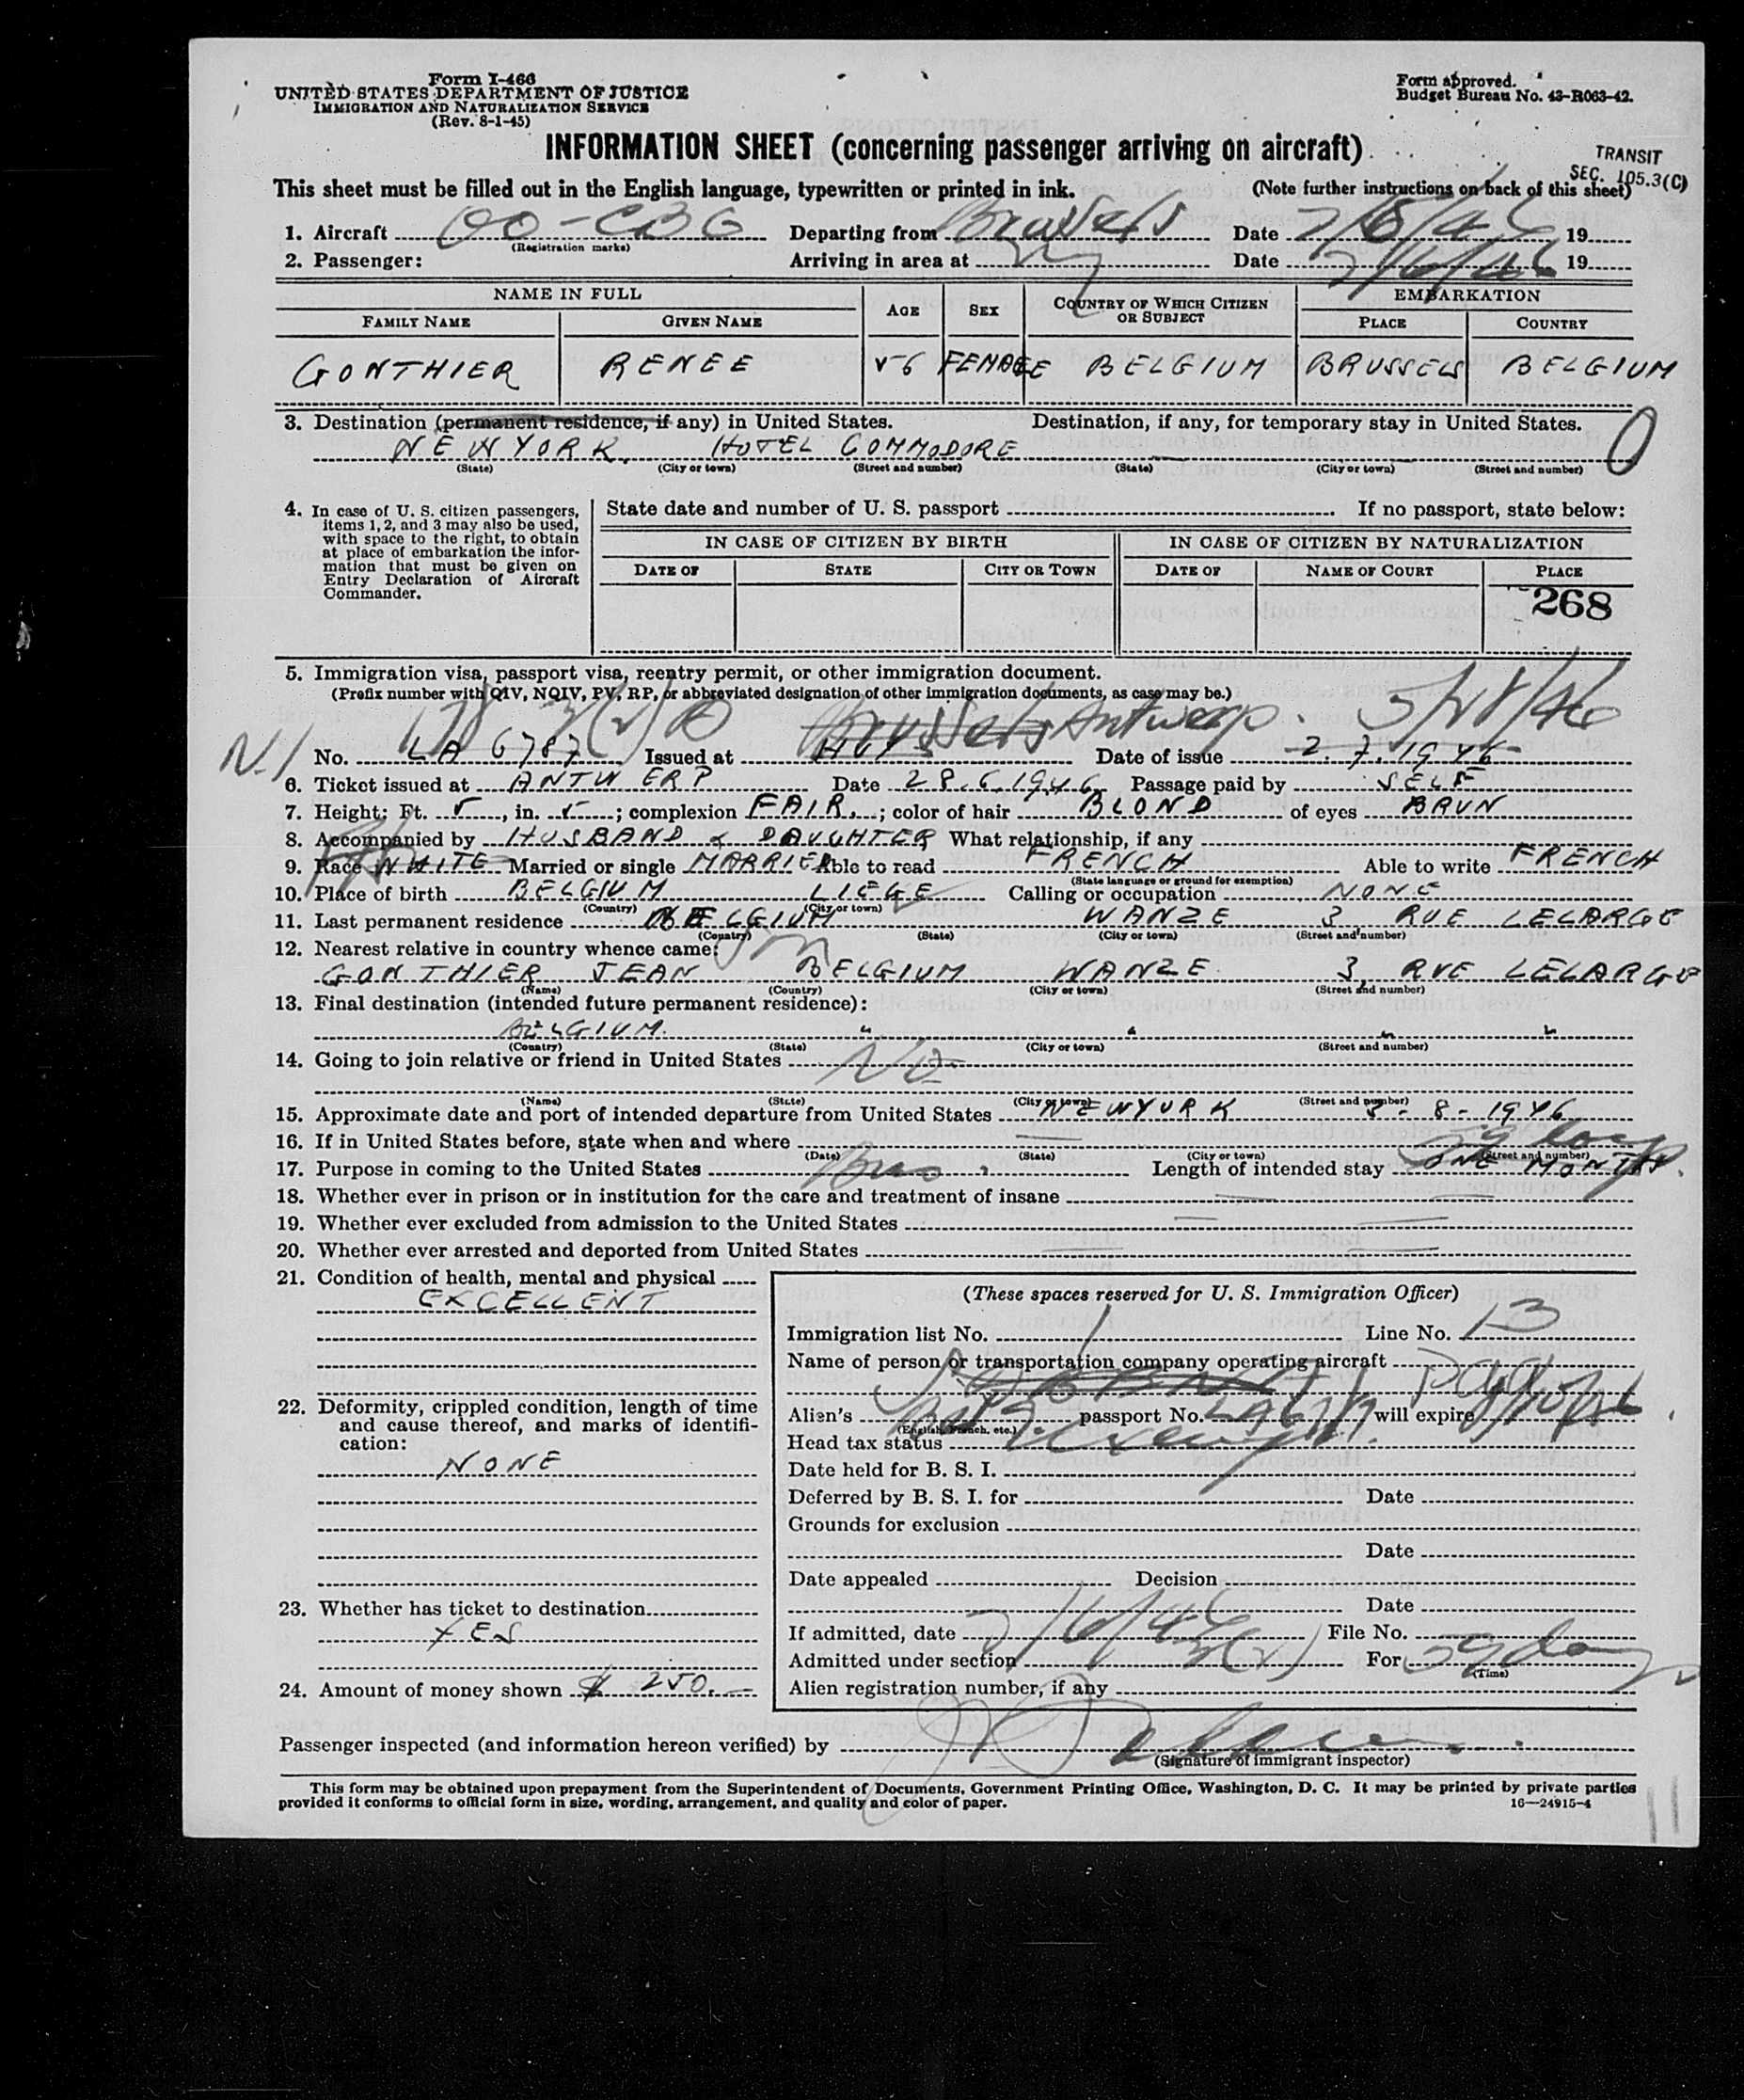 Form I-466
UNITED STATES DEPARTMENT OF JUSTICE
IMMIGRATION AND NATURALIZATION SERVICE
(Rev. 8-1-45)
Form approved.
Budget Bureau No. 43-R063-42.
INFORMATION SHEET (concerning passenger arriving on aircraft)
TRANSIT
SEC. 105.3(C)
This sheet must be filled out in the English language, typewritten or printed in ink. (Note further instructions on back of this sheet)
1. Aircraft OO-CBG Departing from Brussels Date 7/5/46 19
(Registration marks)
2. Passenger: Arriving in area at NY Date 7/6/46 19
NAME IN FULL AGE SEX COUNTRY OF WHICH CITIZEN OR SUBJECT EMBARKATION
FAMILY NAME GIVEN NAME PLACE COUNTRY
GONTHIER RENEE 56 FEMALE BELGIUM BRUSSELS BELGIUM
3. Destination (permanent residence, if any) in United States. Destination, if any, for temporary stay in United States.
NEW YORK. HOTEL COMMODORE 0
(State) (City or town) (Street and number) (State) (City or town) (Street and number)
4. In case of U. S. citizen passengers, items 1, 2, and 3 may also be used, with space to the right, to obtain at place of embarkation the information that must be given on Entry Declaration of Aircraft Commander.
State date and number of U. S. passport If no passport, state below:
IN CASE OF CITIZEN BY BIRTH IN CASE OF CITIZEN BY NATURALIZATION
DATE OF STATE CITY OR TOWN DATE OF NAME OF COURT PLACE
268
5. Immigration visa, passport visa, reentry permit, or other immigration document.
(Prefix number with QIV, NQIV, PV, RP, or abbreviated designation of other immigration documents, as case may be.)
3(2) Brussels Antwerp. 5/28/46
No. LA 6787 Issued at HUY Date of issue 2.7.1946
6. Ticket issued at ANTWERP Date 28.6.1946 Passage paid by SELF
7. Height: Ft. 5, in. 5; complexion FAIR; color of hair BLOND of eyes BRUN
8. Accompanied by HUSBAND & DAUGHTER What relationship, if any
9. Race WHITE Married or single MARRIED Able to read FRENCH Able to write FRENCH
(State language or ground for exemption)
10. Place of birth BELGIUM LIEGE Calling or occupation NONE
(Country) (City or town)
11. Last permanent residence BELGIUM WANZE 3 RUE LELARGE
(Country) (State) (City or town) (Street and number)
12. Nearest relative in country whence came:
GONTHIER JEAN BELGIUM WANZE 3, RUE LELARGE
(Name) (Country) (City or town) (Street and number)
13. Final destination (intended future permanent residence):
BELGIUM. " " " "
(Country) (State) (City or town) (Street and number)
14. Going to join relative or friend in United States No
(Name) (State) (City or town) (Street and number)
15. Approximate date and port of intended departure from United States NEWYORK 3-8-1946
16. If in United States before, state when and where
(Date) (State) (City or town) (Street and number)
29 days
17. Purpose in coming to the United States Bus. Length of intended stay ONE MONTH
18. Whether ever in prison or in institution for the care and treatment of insane
19. Whether ever excluded from admission to the United States
20. Whether ever arrested and deported from United States
21. Condition of health, mental and physical
EXCELLENT
22. Deformity, crippled condition, length of time and cause thereof, and marks of identification:
NONE
23. Whether has ticket to destination
YES
24. Amount of money shown $ 250.—
(These spaces reserved for U. S. Immigration Officer)
Immigration list No. 1 Line No. 13
Name of person or transportation company operating aircraft
Alien's passport No. will expire
(English, French, etc.)
Head tax status Exempt
Date held for B. S. I.
Deferred by B. S. I. for Date
Grounds for exclusion
Date
Date appealed Decision
Date
If admitted, date 7/6/46 File No.
Admitted under section 3(2) For 29 days
(Time)
Alien registration number, if any
Passenger inspected (and information hereon verified) by
(Signature of immigrant inspector)
This form may be obtained upon prepayment from the Superintendent of Documents, Government Printing Office, Washington, D. C. It may be printed by private parties
provided it conforms to official form in size, wording, arrangement, and quality and color of paper.
16—24915-4
11